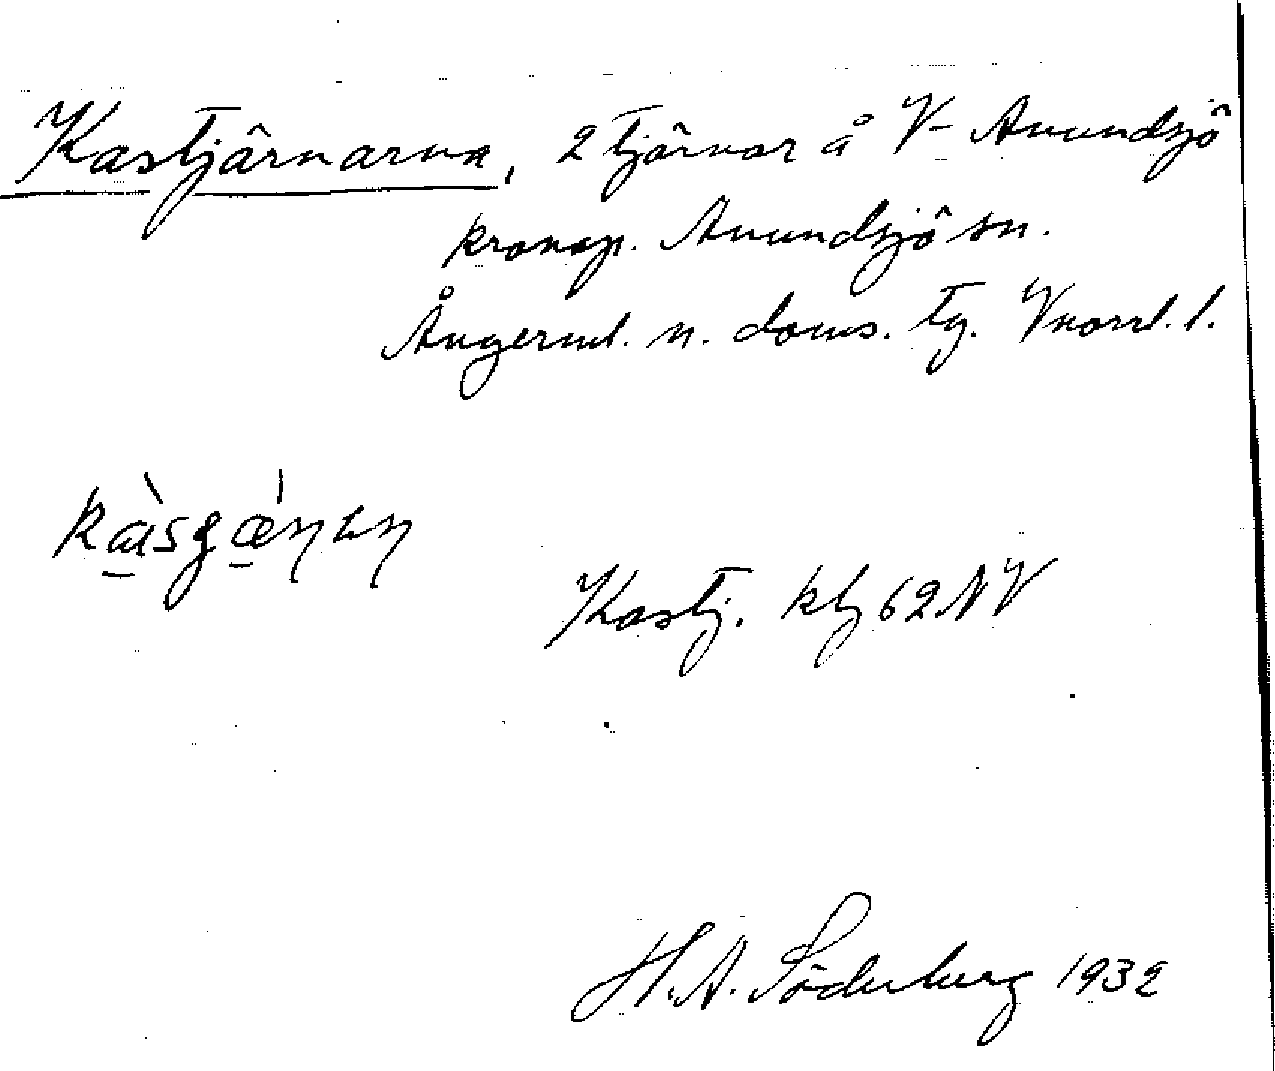 Kastjärnarna, 2 tjärnar å V- Anundsjö
kronop. Anundsjö sn.
Ångerml. n. doms. tg. Vnorrl. l.
Kastj. kbl 62 NV
H. A. Söderberg 1932